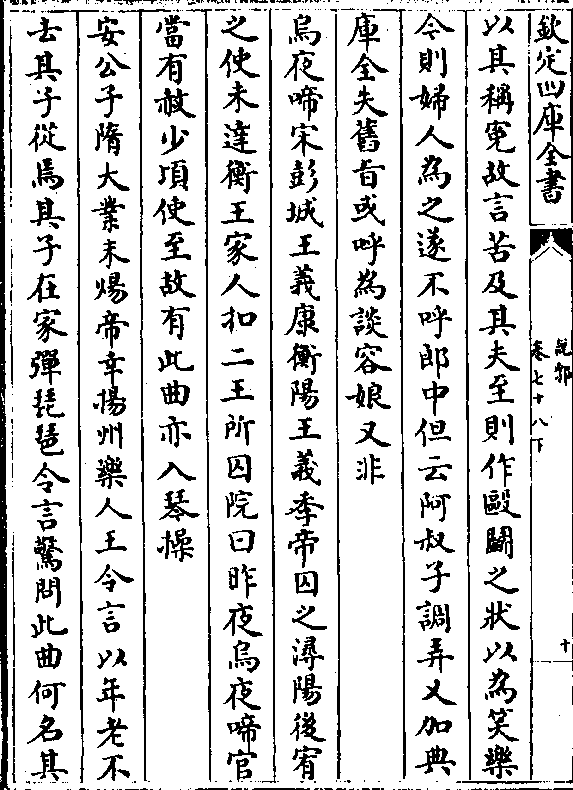 欽定四庫全書
說郛
卷七十八下
十
以其稱寃故言苦及其夫至則作毆鬭之狀以為笑樂
今則婦人為之遂不呼郎中但云阿叔子調弄又加典
庫全失舊旨或呼為談容娘又非
烏夜啼宋彭城王義康衡陽王義季帝囚之潯陽後宥
之使未達衡王家人扣二王所囚院曰昨夜烏夜啼官
當有赦少項使至故有此曲亦入琴操
安公子隋大業末煬帝幸揚州樂人王令言以年老不
去其子從焉其子在家彈琵琶令言驚問此曲何名其